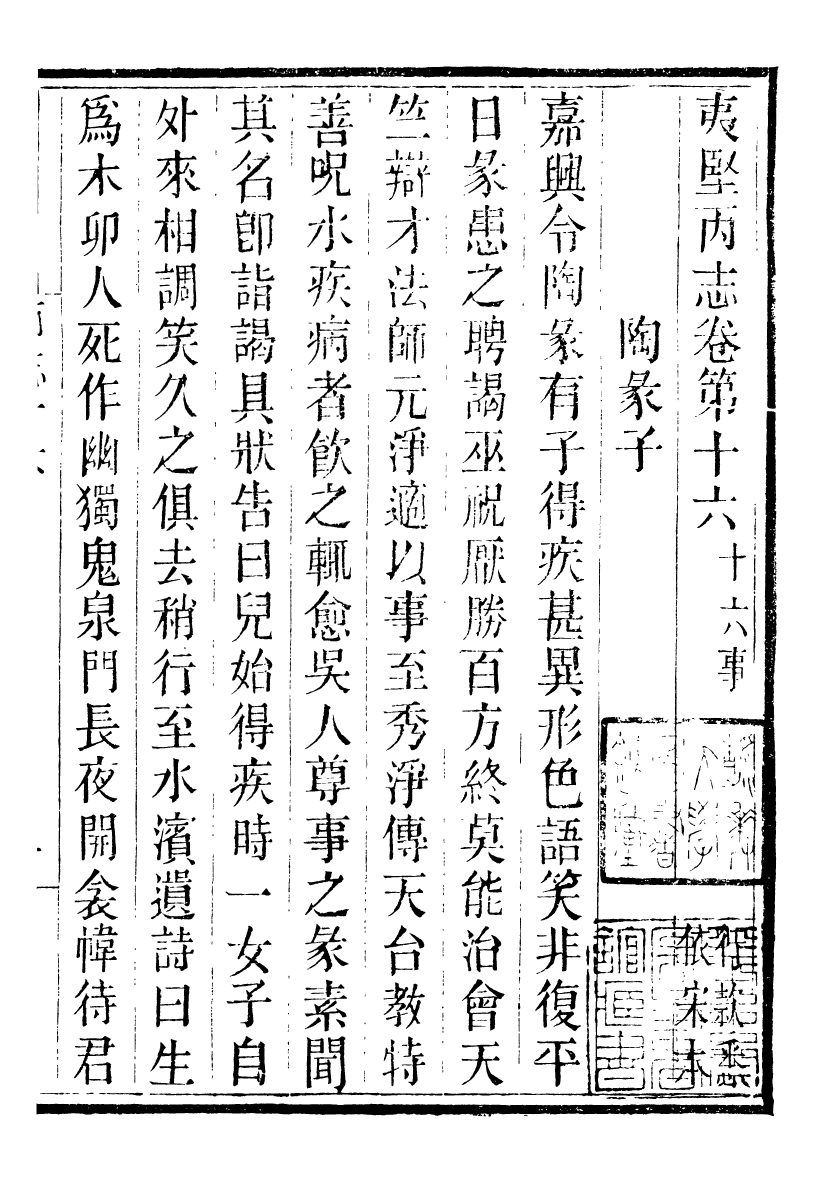 夷堅丙志卷第十六十六事
行款悉
依宋本
陶彖子
嘉興令陶彖有子得疾甚異形色語笑非復平
日彖患之聘謁巫祝厭勝百方終莫能治會天
竺辯才法師元淨適以事至秀淨傳天台教特
善呪水疾病者飮之輒愈吳人尊事之彖素聞
其名卽詣謁具狀告曰兒始得疾時一女子自
外來相調笑久之俱去稍行至水濱遺詩曰生
爲木卯人死作幽獨鬼泉門長夜開衾幃待君